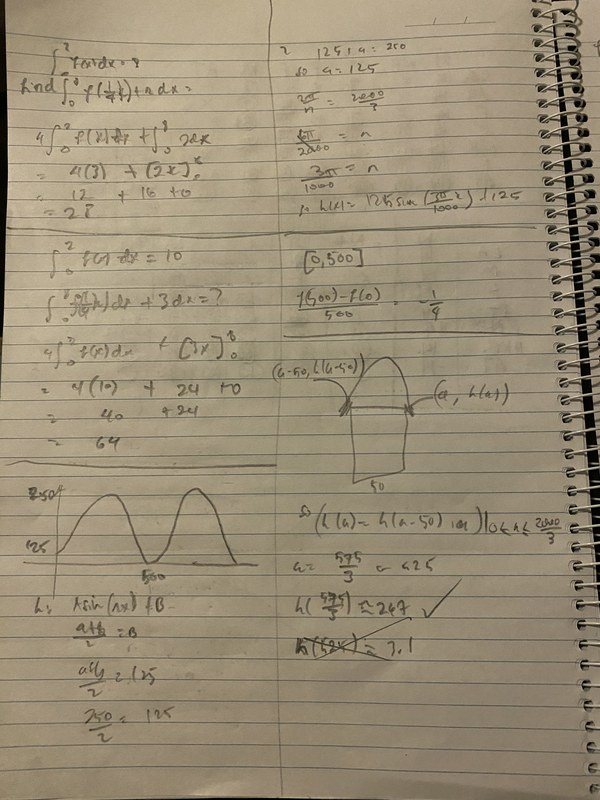 ∫₀² f(x) dx = 3
find ∫₀⁸ f(¼x) + 2 dx =
4∫₀² f(x) dx + ∫₀⁸ 2dx
= 4(3) + [2x]₀⁸
= 12 + 16 + 0
= 28
∫₀² f(x) dx = 10
4∫₀² f(x) dx + [3x]₀⁸
= 4(10) + 24 + 0
= 40 + 24
= 64
250
125
500
h = A sin(nx) + B
a+b/2 = B
a+b/2 = 125
250/2 = 125
125 + a = 250
so a = 125
2π/n = 2000/3
6π/2000 = n
3π/1000 = n
so h(x) = 125 sin(3π/1000 x) + 125
[0,500]
f(500) - f(0)/500 = -1/4
(a-50, h(a-50))
(a, h(a))
50
so (h(a) = h(a-50) , a) | 0 ≤ a ≤ 2000/3
a = 575/3 or 525
h(575/3) ≈ 247 ✓
h(525) ≈ 3.1